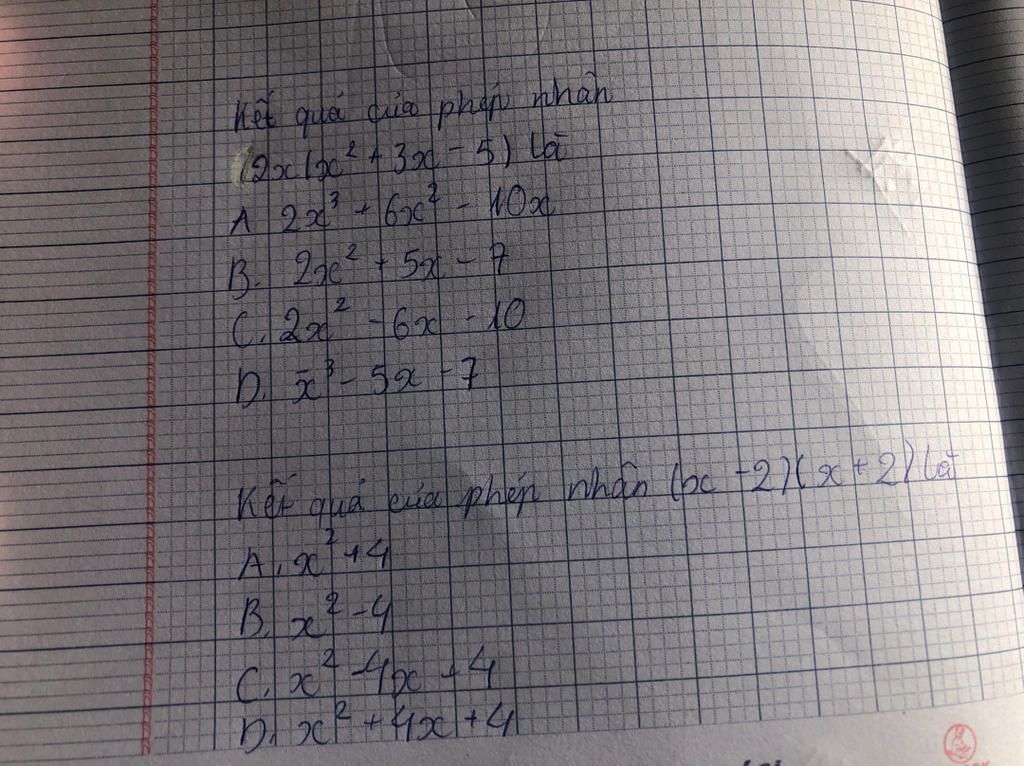 Kết quả của phép nhân
(2x(x² + 3x - 5) là
A 2x³ + 6x² - 10x
B. 2x² + 5x - 7
C. 2x² - 6x - 10
D. x³ - 5x - 7
Kết quả của phép nhân (x - 2)(x + 2) là
A. x² + 4
B. x² - 4
C. x² - 4x + 4
D. x² + 4x + 4